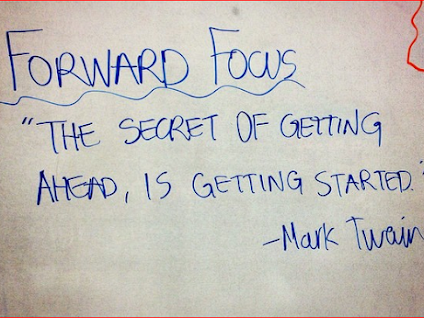 FORWARD FOCUS
"THE SECRET OF GETTING
AHEAD, IS GETTING STARTED."
-Mark Twain